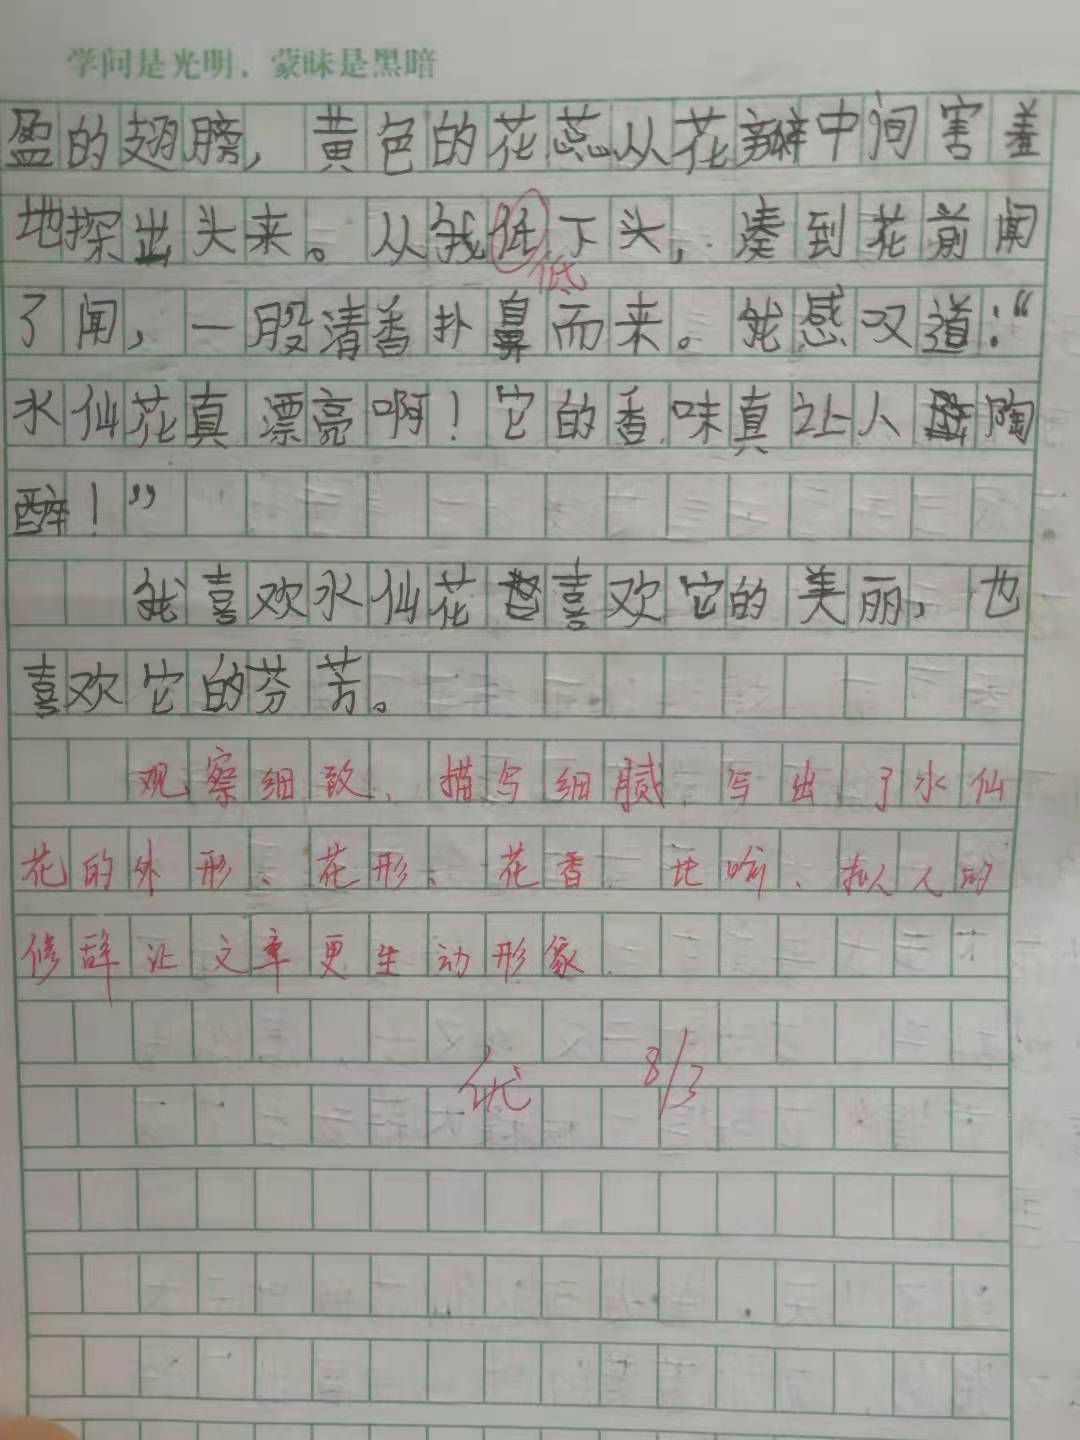 学问是光明，蒙昧是黑暗
盈的翅膀，黄色的花蕊从花瓣中间害羞
地探出头来。从我低下头，凑到花前闻
低
了闻，一股清香扑鼻而来。我感叹道：“
水仙花真漂亮啊！它的香味真让人陶
醉！”
我喜欢水仙花喜欢它的美丽，也
喜欢它的芬芳。
观察细致，描写细腻，写出了水仙
花的外形、花形、花香，比喻、拟人的
修辞让文章更生动形象
优 8/3